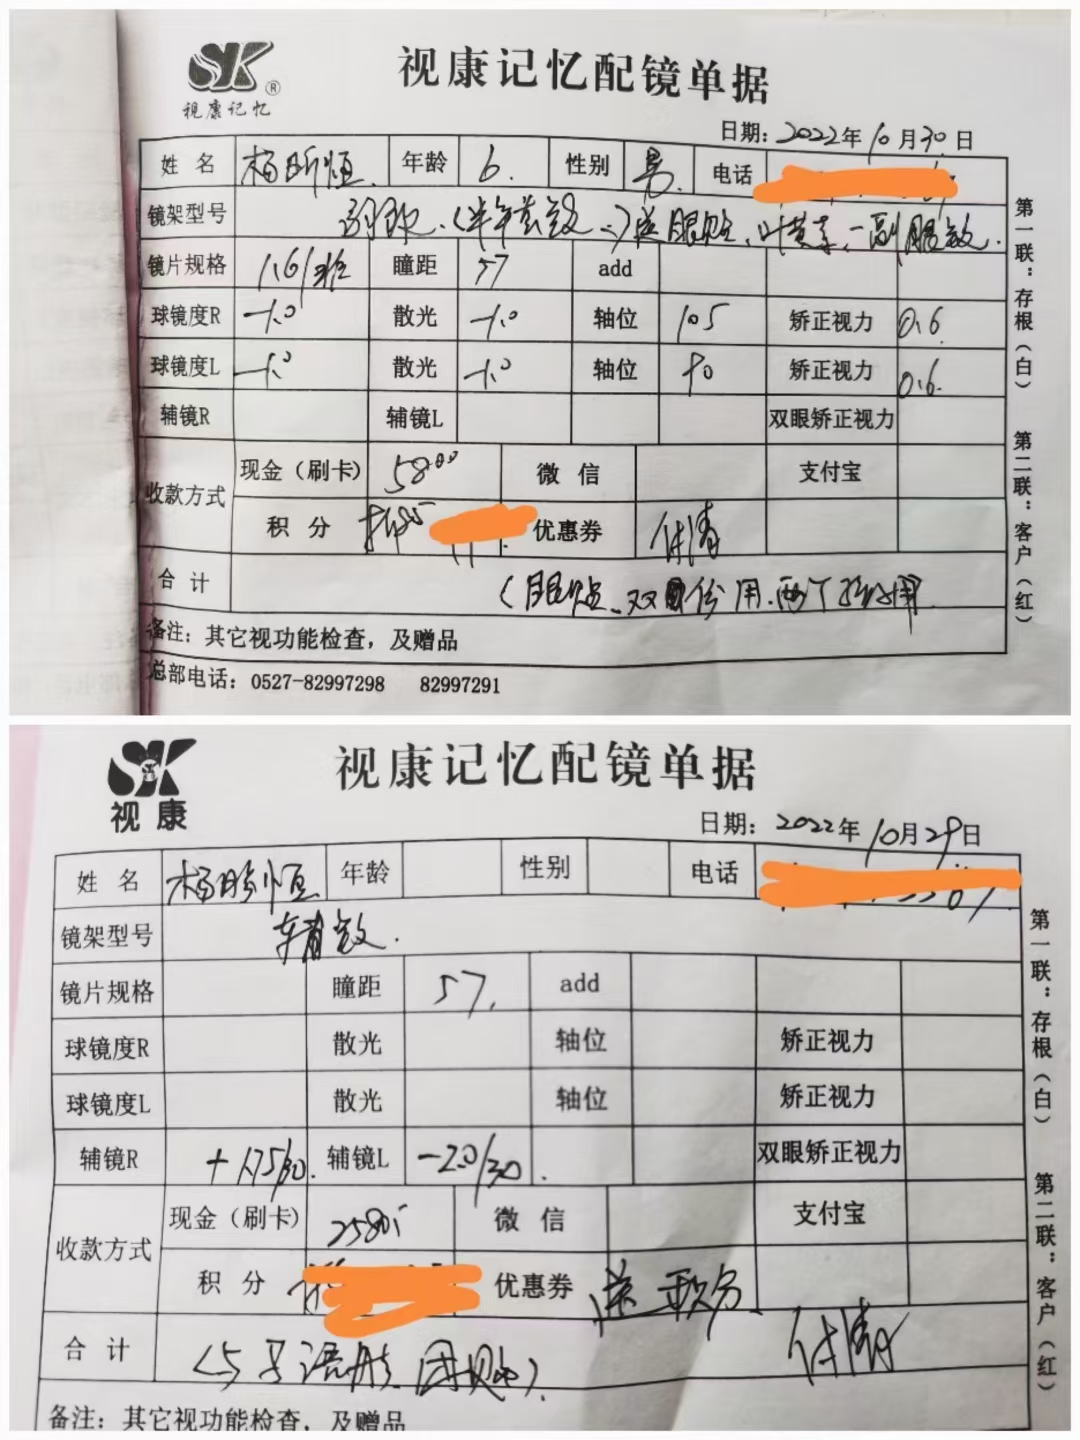 SK®
视康记忆
视康记忆配镜单据
日期：2022年10月30日
姓名 杨昕恒 年龄 6. 性别 男. 电话
镜架型号 送眼贴、叶黄素、一副眼镜.
镜片规格 1.61 瞳距 57 add
球镜度R -1.0 散光 -1.0 轴位 105 矫正视力 0.6
球镜度L -1.0 散光 -1.0 轴位 90 矫正视力 0.6.
辅镜R 辅镜L 双眼矫正视力
收款方式 现金（刷卡） 5800 微信 支付宝
积分 优惠券 付清
合计 (眼贴、双
备注：其它视功能检查，及赠品
总部电话：0527-82997298 82997291
第一联：存根（白） 第二联：客户（红）
SK
视康
视康记忆配镜单据
日期：2022年10月29日
姓名 年龄 性别 电话
镜架型号 辅镜.
镜片规格 瞳距 57. add
球镜度R 散光 轴位 矫正视力
球镜度L 散光 轴位 矫正视力
辅镜R +1.75/30. 辅镜L -2.0/30. 双眼矫正视力
收款方式 现金（刷卡） 2580 微信 支付宝
积分 优惠券 送 积分
合计 付清
备注：其它视功能检查，及赠品
第一联：存根（白） 第二联：客户（红）